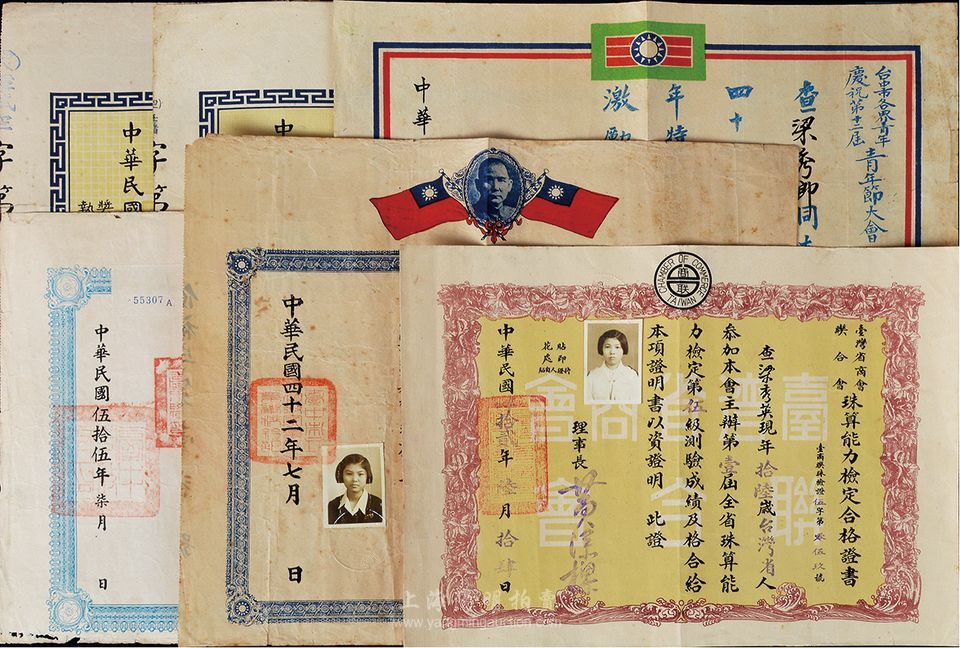 字第
中華民國
獎
執
中
字第
中華
激勵
年特
四十
查梁秀卿同
台東各界青年
慶祝第十二屆
青年節大會
55307 A
中華民國伍拾伍年柒月 日
中華民國四十二年七月 日
CHAMBER OF COMMERCE
商联
TAIWAN
臺灣省商會
聯合會
珠算能力檢定合格證書
臺商聯珠檢證伍字第零伍玖號
查梁秀英現年拾陸歲台灣省人
參加本會主辦第壹屆全省珠算能
力檢定第伍級測驗成績及格合給
本項證明書以資證明 此證
貼印
花處
理事長
中華民國 拾貳年陸月拾肆日
臺灣省商會
聯合會
www.yangmingauction.com